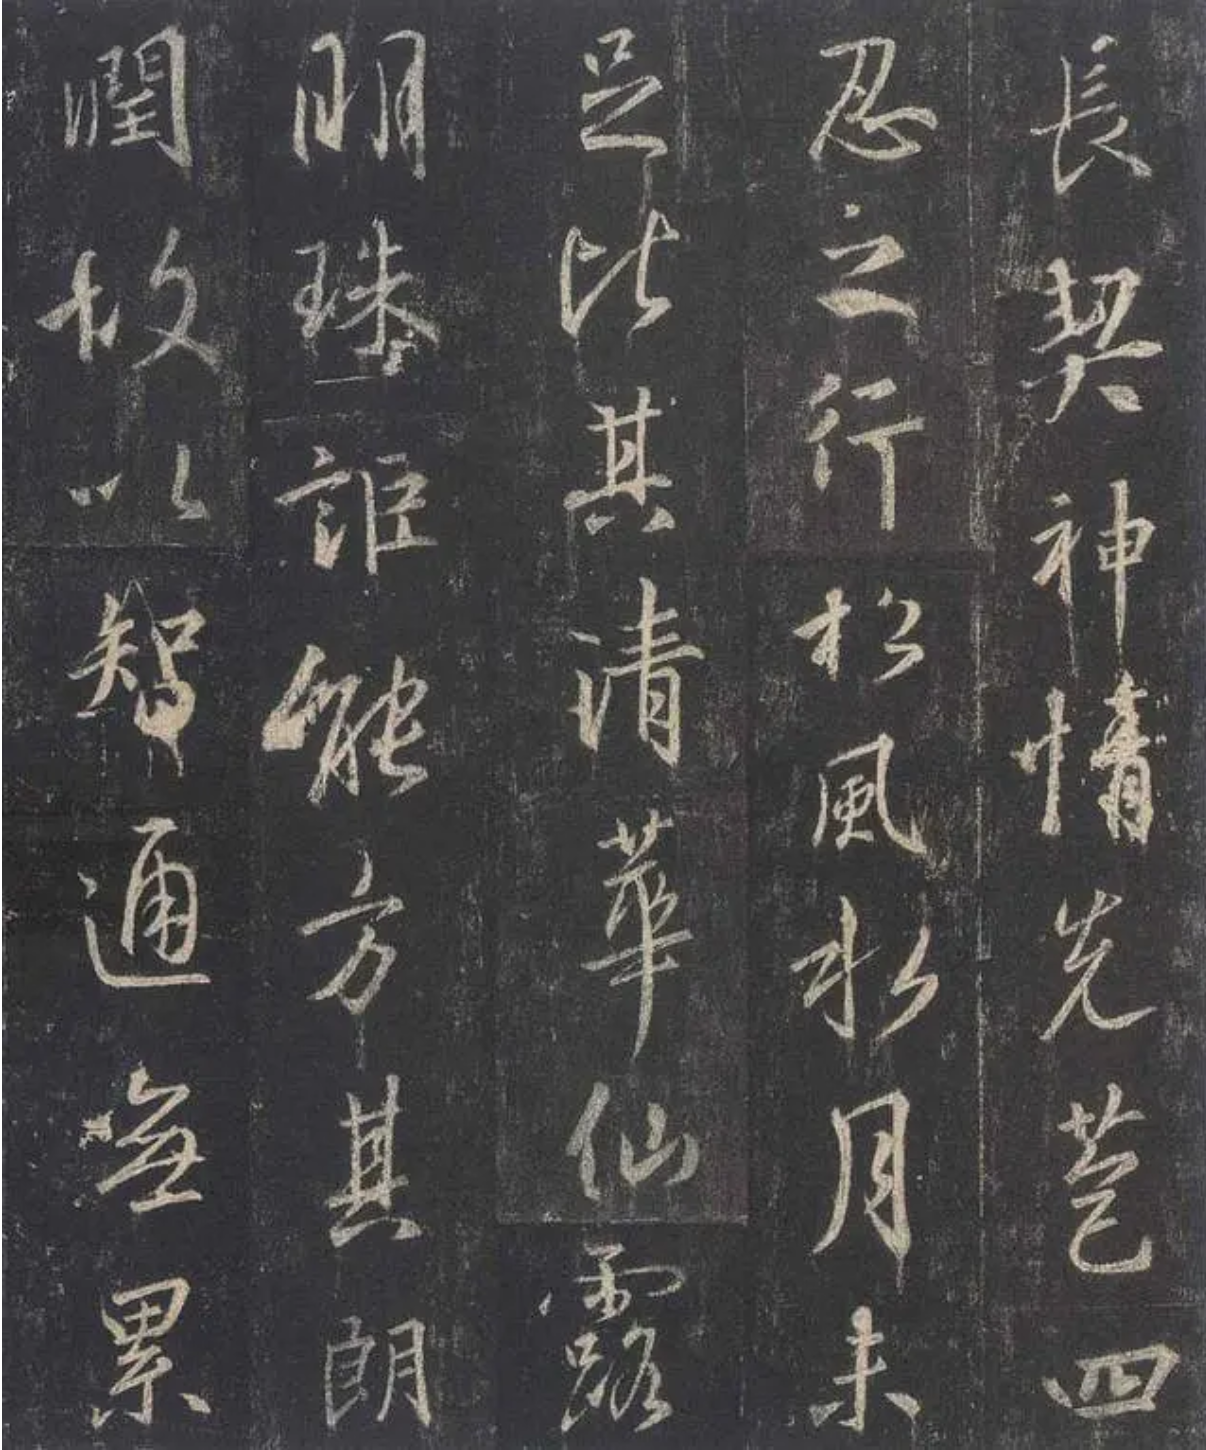 長契神情先苞四
忍之行松風水月未
足比其清華仙露
明珠詎能方其朗
潤故以智通無累